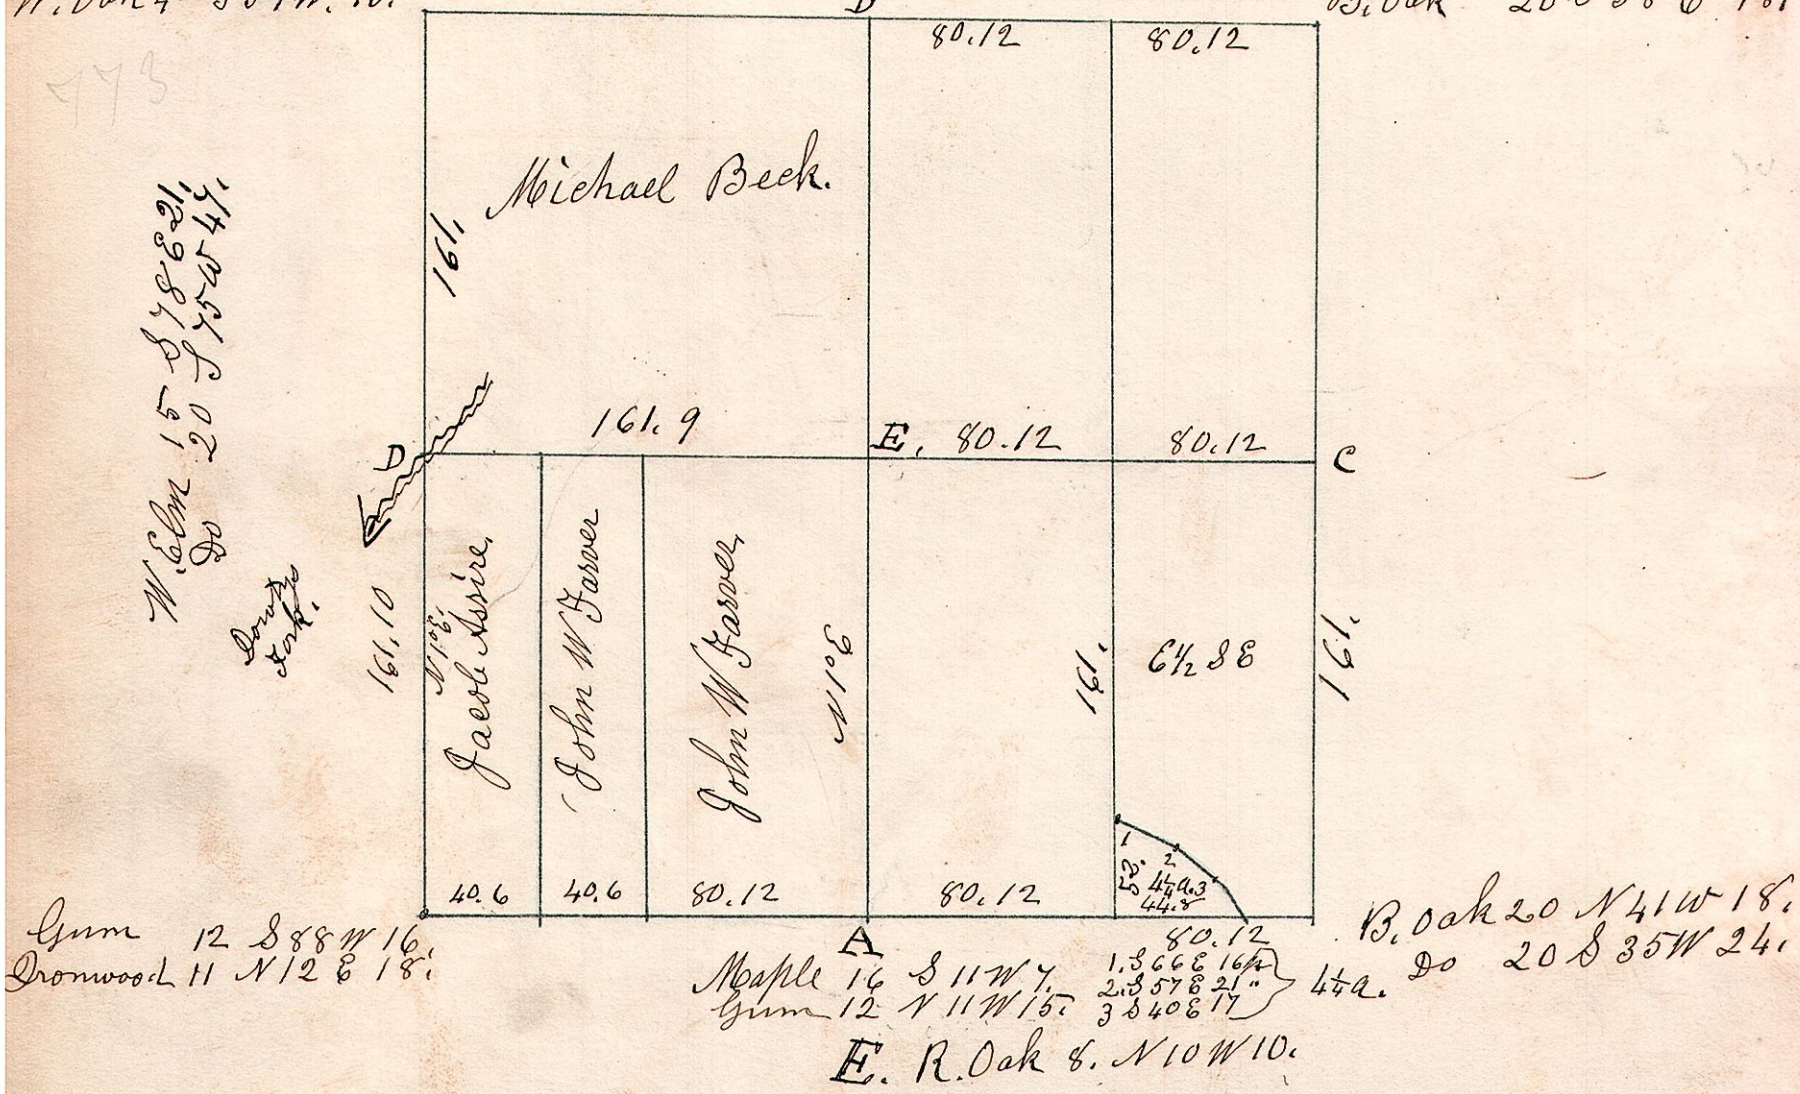 B. Oak
80.12 80.12
773
Michael Beck.
161.
W. Elm 15 S 78 E 21.
Do 20 S 75 W 47.
161. 9
D
E. 80.12 80.12 C
Fork.
161.10
N 1° E.
Jacob
John W Farver
John W Farver
N 1° E
161.
E ½ S E
161.
1
2
4¼ a. 3
44.8
40.6 40.6 80.12 80.12
80.12
Gum 12 S 88 W 16.
Ironwood 11 N 12 E 18.
A
Maple 16 S 11 W 7.
Gum 12 N 11 W 15.
1. S 66 E 16
2. S 57 E 21 "
3 S 40 E 17
4¼ a.
B. Oak 20 N 41 W 18.
Do 20 S 35 W 24.
E. R. Oak 8. N 10 W 10.